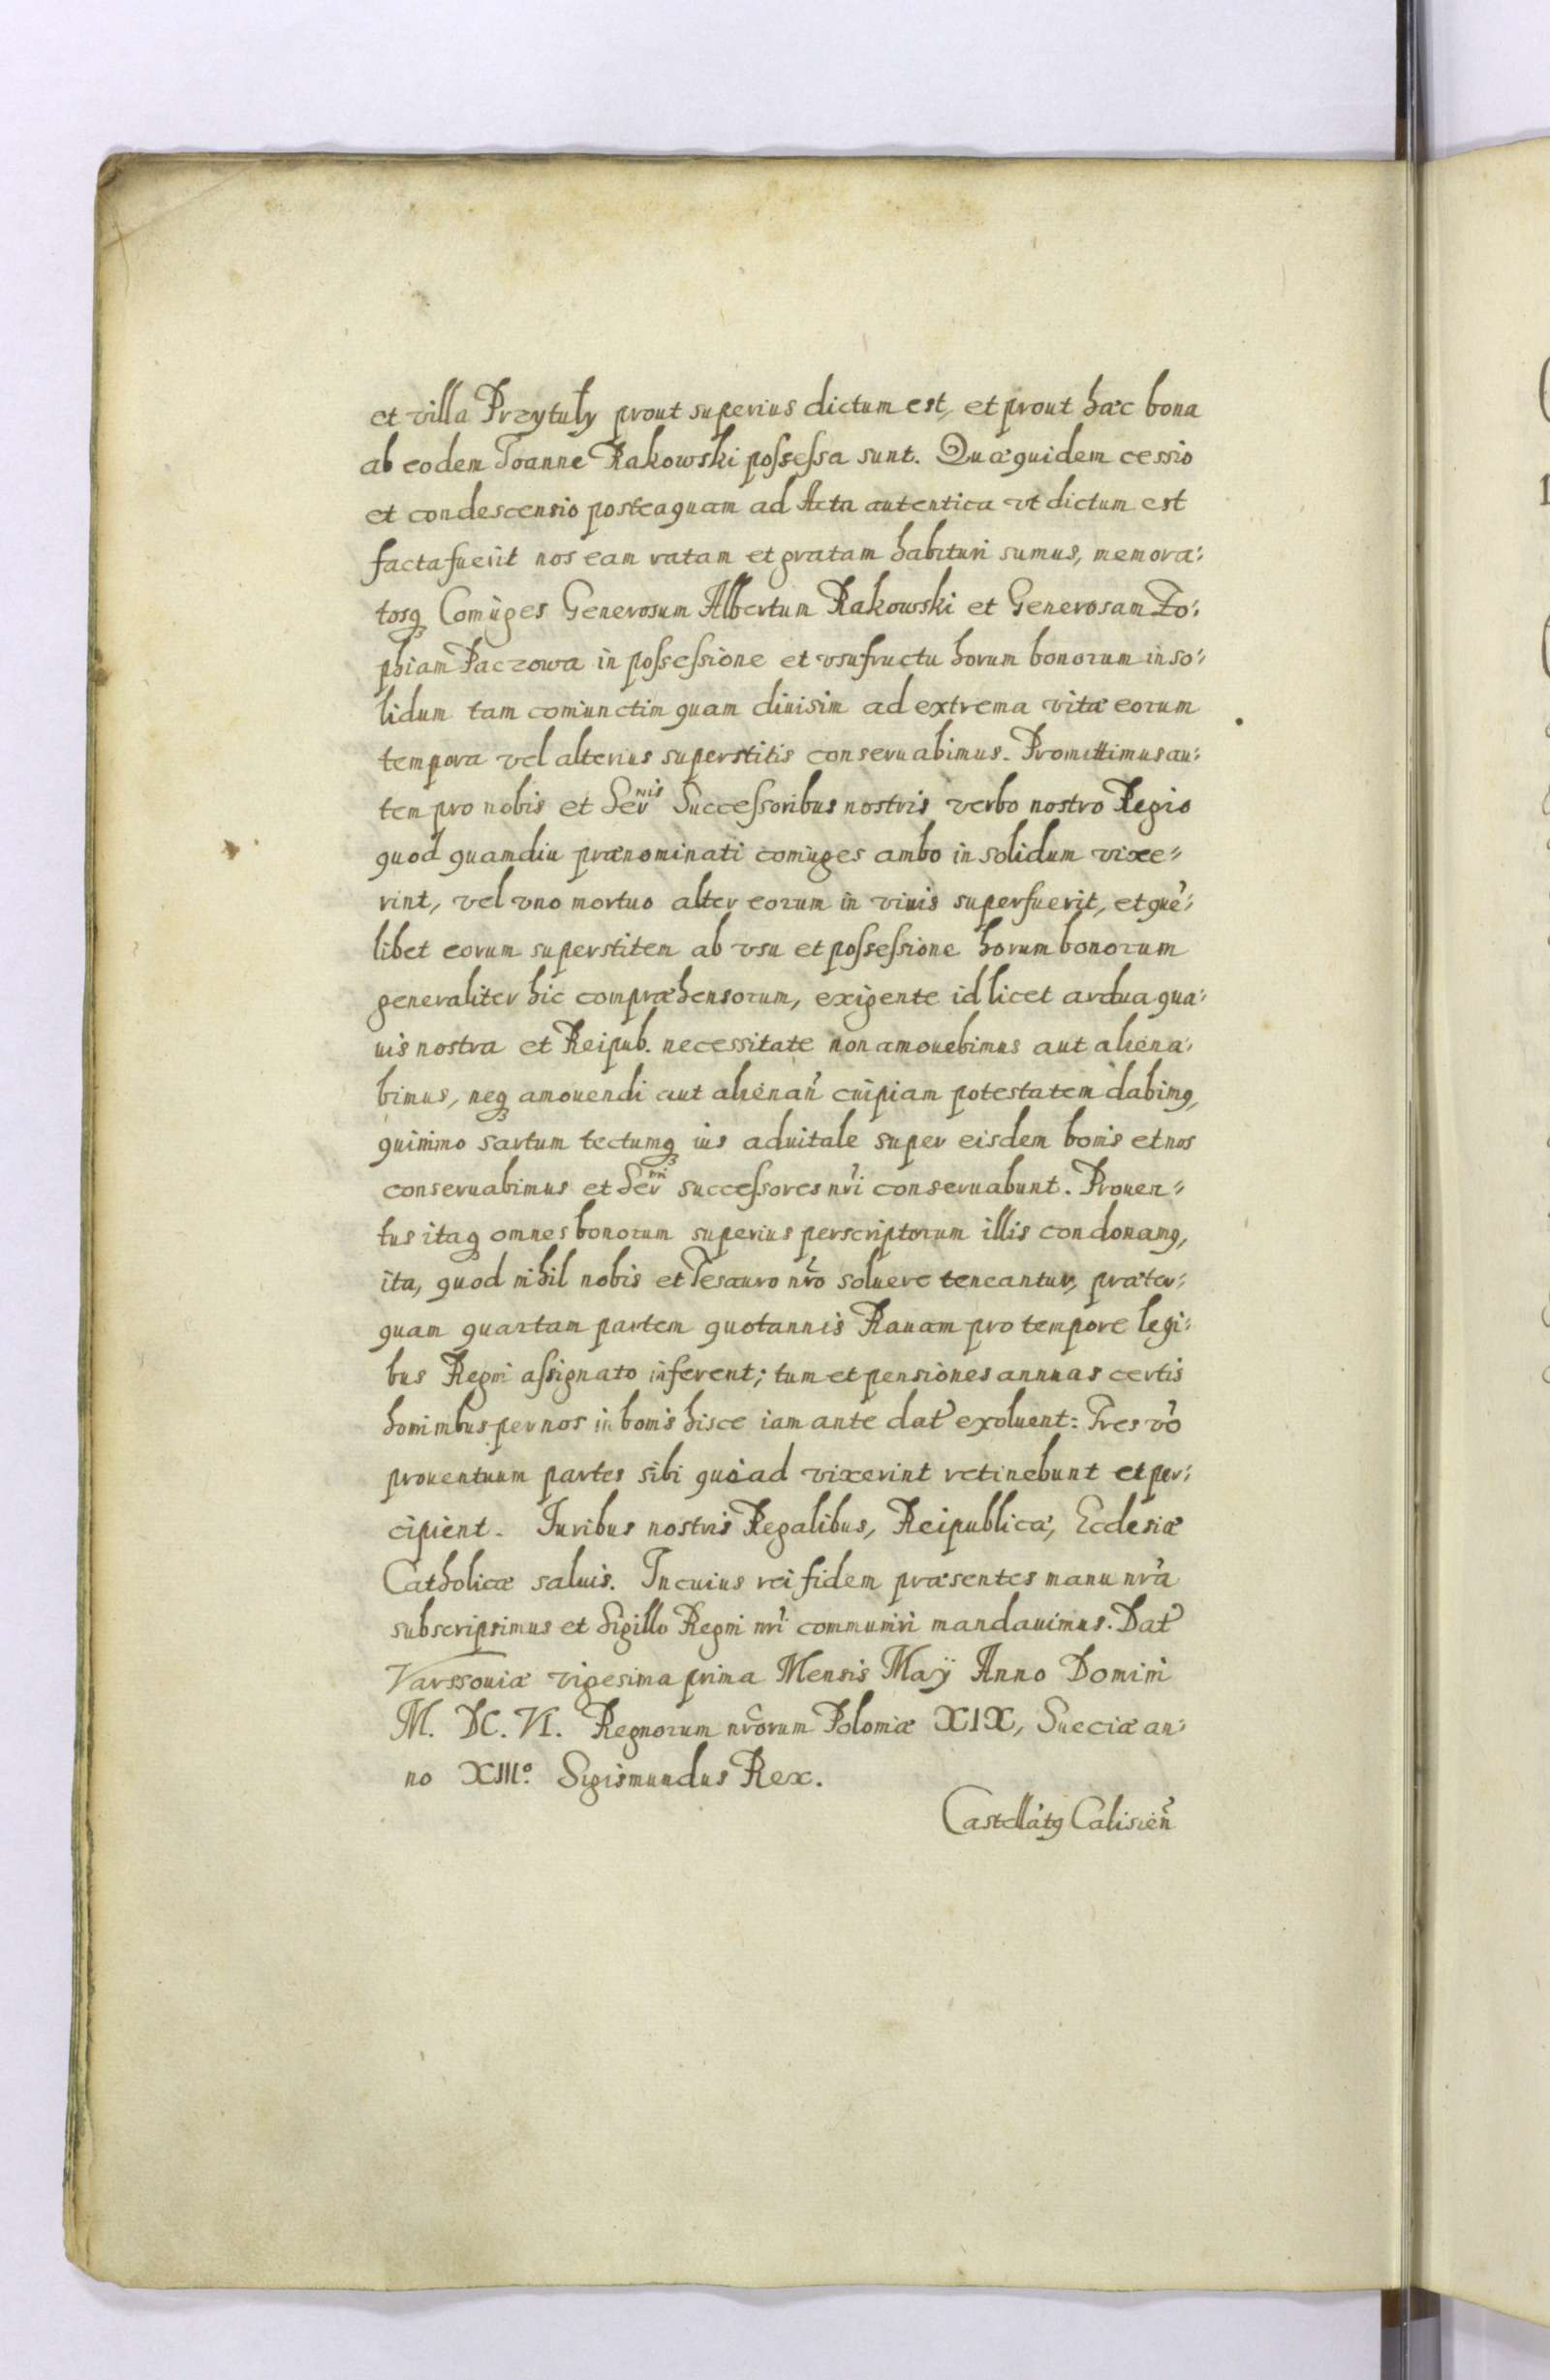 et villa Przytuły prout superius dictum est, et prout hæc bona
ab eodem Joanne Rakowski possessa sunt. Quæ quidem cessio
et condescensio posteaquam ad Acta autentica vt dictum est
facta fuerit nos eam ratam et gratam habituri sumus, memora:
tosq₃ Coniuges Generosum Albertum Rakowski et Generosam Zo:
phiam Paczowa in possessione et vsufructu horum bonorum in so:
lidum tam coniunctim quam diuisim ad extrema vitæ eorum
tempora vel alterius superstitis conseruabimus. Promittimus au:
tem pro nobis et Serⁿⁱˢ Successoribus nostris verbo nostro Regio
quod quamdiu prænominati coniuges ambo in solidum vixe=
rint, vel vno mortuo alter eorum in viuis superfuerit, et quē:
libet eorum superstitem ab vsu et possessione horum bonorum
generaliter hic compræhensorum, exigente id licet ardua qua:
uis nostra et Reipub. necessitate non amouebimus aut aliena:
bimus, neq₃ amouendi aut alienan̄ cuipiam potestatem dabimꝰ,
quinimo sartum tectumq₃ ius aduitale super eisdem bonis et nos
conseruabimus et Serⁿⁱ successores nr̄i conseruabunt. Prouen=
tus itaq₃ omnes bonorum superius perscriptorum illis condonamꝰ,
ita, quod nihil nobis et Tesauro nr̄o soluere teneantur, præter:
quam quartam partem quotannis Rauam pro tempore legi:
bus Regni assignato inferent; tum et pensiones annuas certis
hominibus per nos in bonis hisce iam ante dat̄ exoluent: Tres vō
prouentuum partes sibi quoad vixerint retinebunt et per:
cipient. Juribus nostris Regalibus, Reipublicæ, Ecclesiæ
Catholicæ saluis. In cuius rei fidem præsentes manu nr̄a
subscripsimus et Sigillo Regni nr̄i communiri mandauimus. Dat̄
Varssouiæ vigesima prima Mensis Maÿ Anno Domini
M. DC. VI. Regnorum nr̄orum Poloniæ XIX, Sueciæ an:
no XIIIº. Sigismundus Rex.
Castellātꝰ Calisien̄